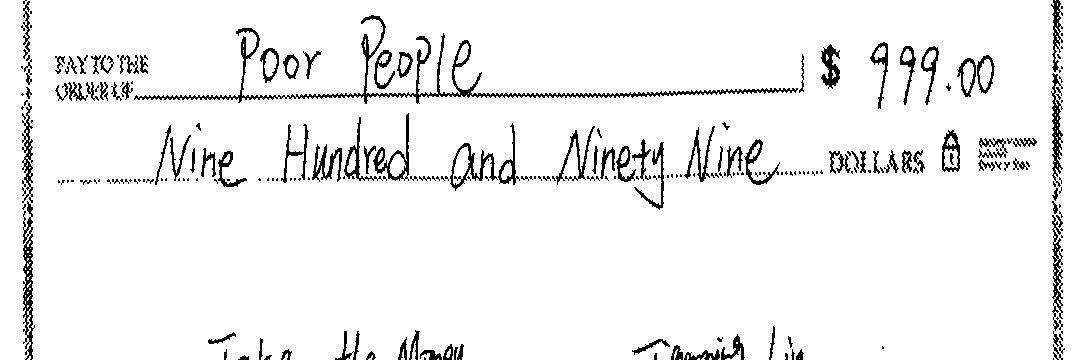 PAY TO THE
ORDER OF Poor People $ 999.00
Nine Hundred and Ninety Nine DOLLARS
Take the Money